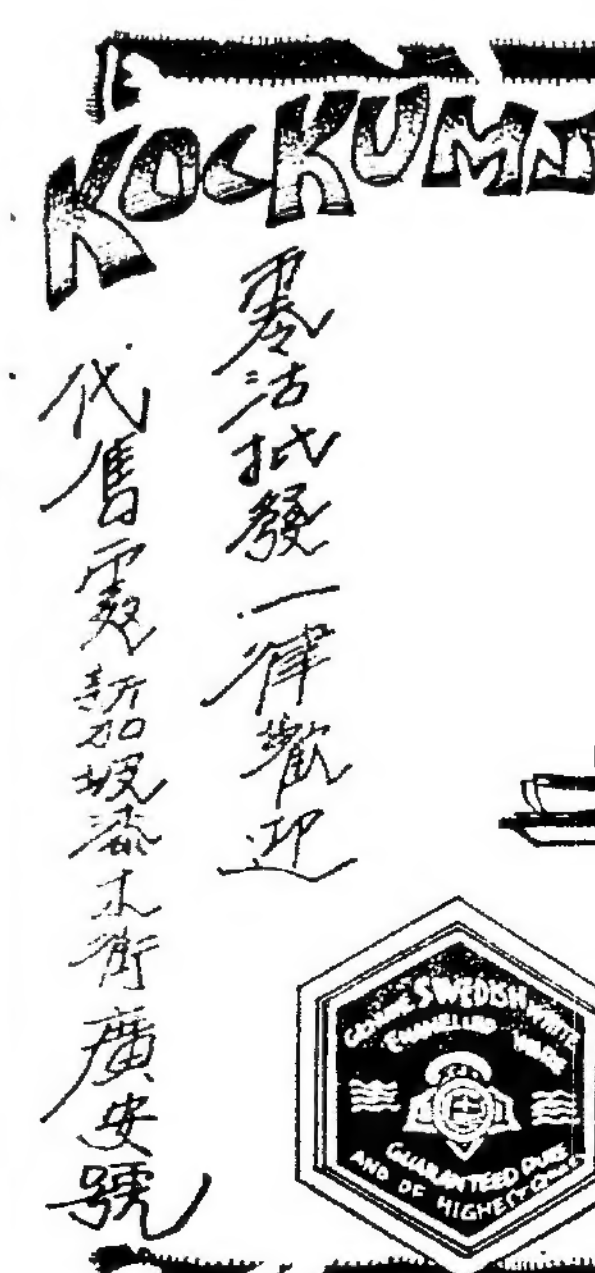 KOCKUMS
零沽批發一律歡迎
代售處新加坡漆木街廣安號
GENUINE SWEDISH WHITE
ENAMELLED WARE
GUARANTEED PURE
AND OF HIGHEST QUALITY